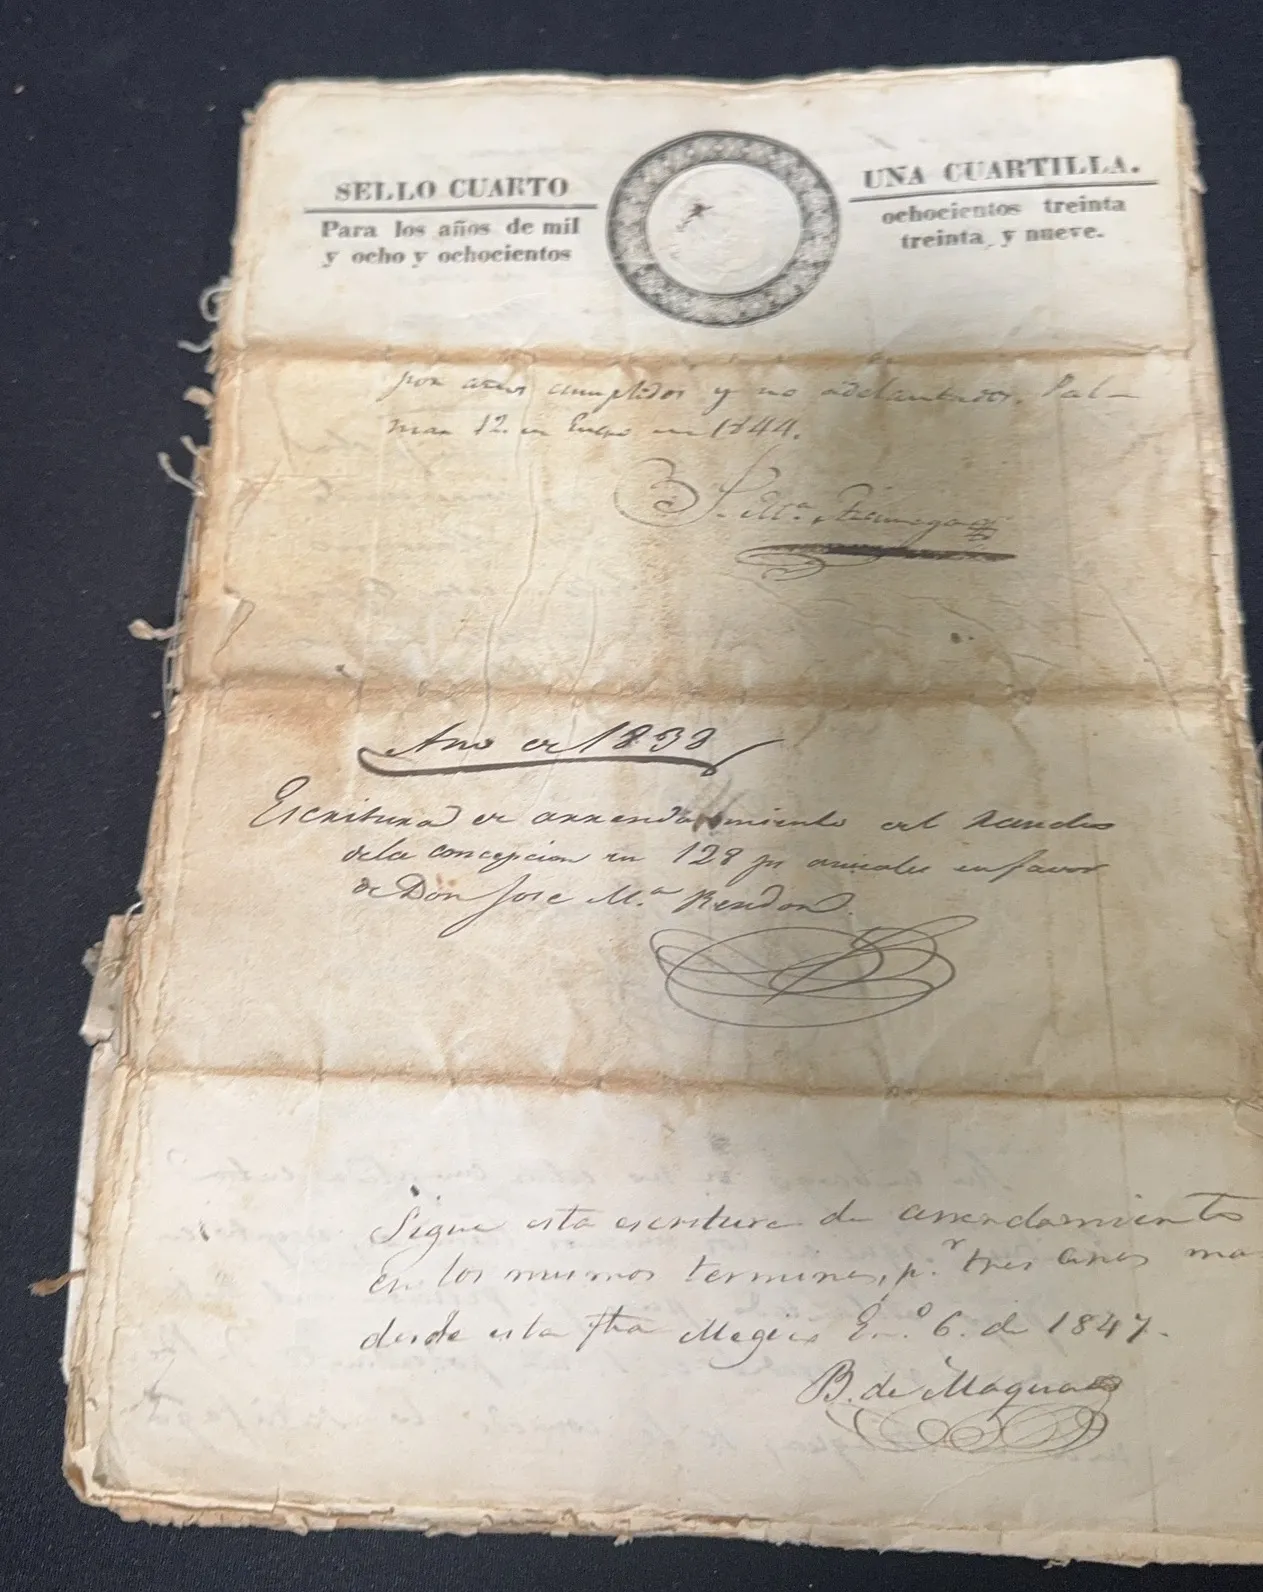 SELLO CUARTO
UNA CUARTILLA.
Para los años de mil
ochocientos treinta
y ocho y ochocientos
treinta y nueve.
por años cumplidos y no adelantados. Pal-
mar 12. de Enero de 1844.
J. Ma.
Año de 1838
Escritura de arrendamiento del Rancho
dela concepcion en 128 ps anuales en favor
de Don Jose M.a Rendon.
Sigue esta escritura de arrendamiento
en los mismos terminos, p.r tres años ma
desde esta fha En.o 6. de 1847.
B. de